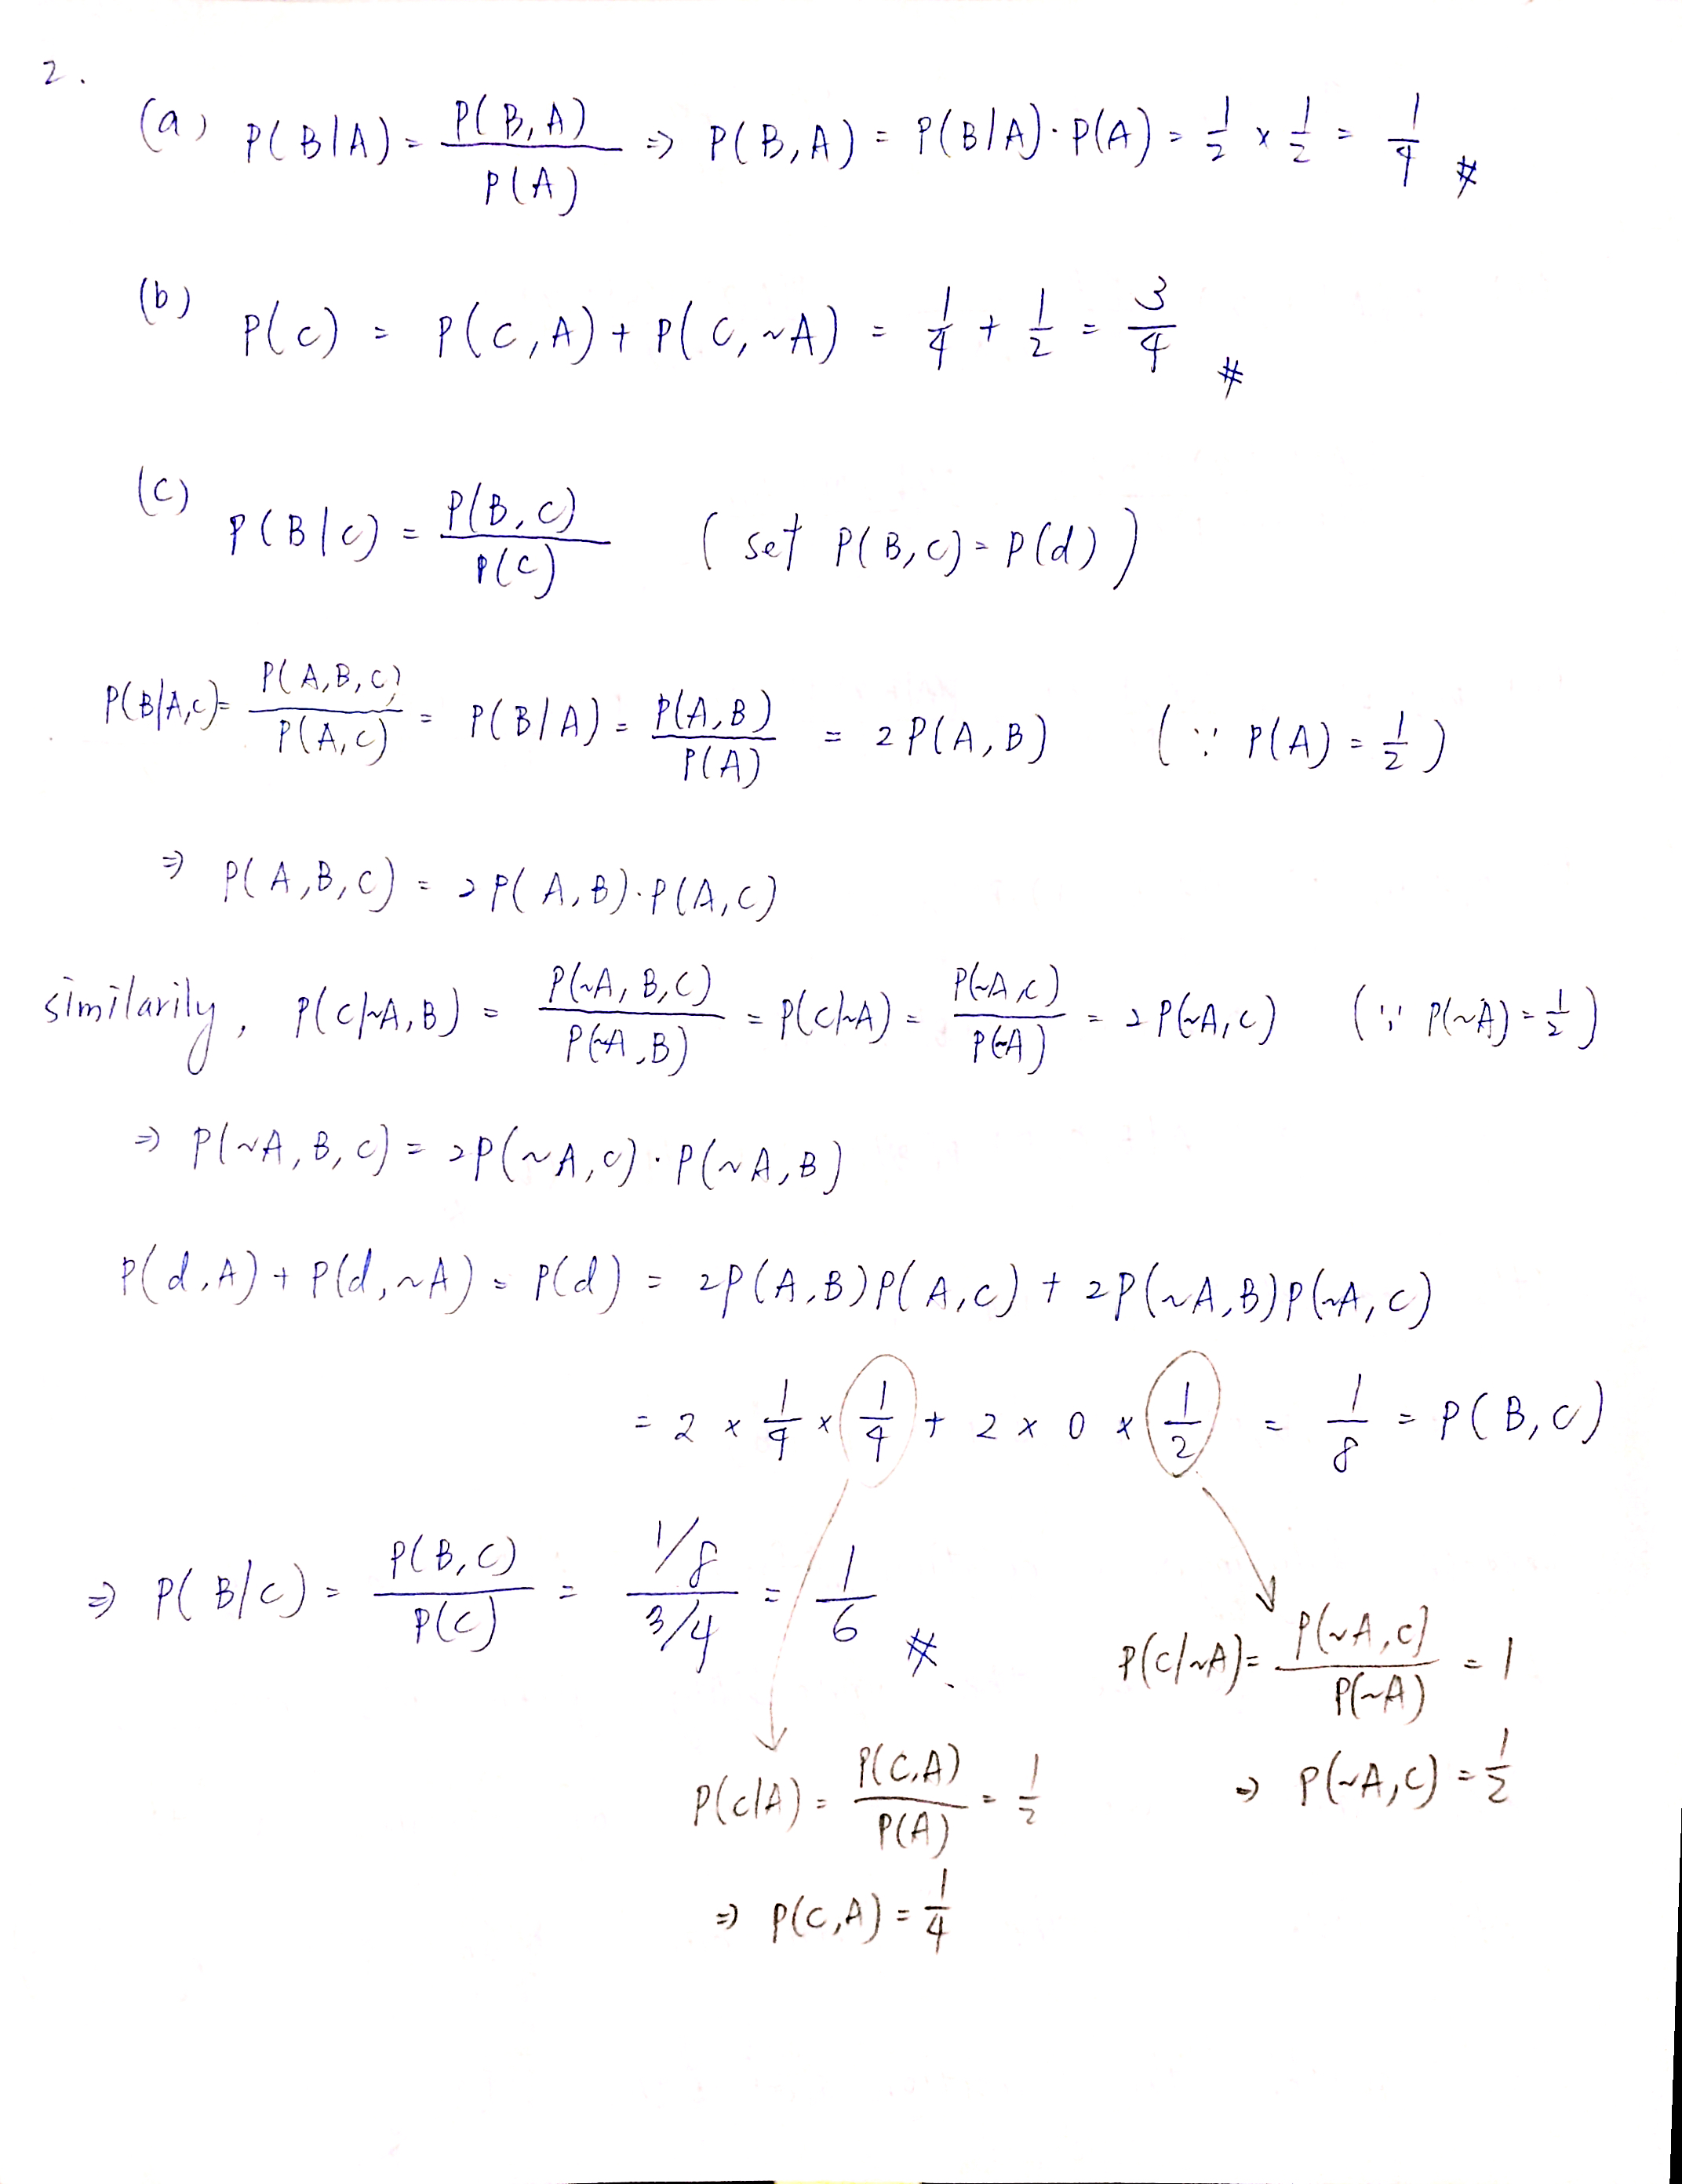 2.
(a) P(B|A) = P(B,A) / P(A) ⇒ P(B,A) = P(B|A)·P(A) = 1/2 × 1/2 = 1/4 #
(b) P(C) = P(C,A) + P(C,~A) = 1/4 + 1/2 = 3/4 #
(c) P(B|C) = P(B,C) / P(C) (set P(B,C) = P(d))
P(B|A,C) = P(A,B,C) / P(A,C) = P(B|A) = P(A,B) / P(A) = 2P(A,B) (∵ P(A) = 1/2)
⇒ P(A,B,C) = 2P(A,B)·P(A,C)
similarily, P(C|~A,B) = P(~A,B,C) / P(~A,B) = P(C|~A) = P(~A,C) / P(~A) = 2P(~A,C) (∵ P(~A) = 1/2)
⇒ P(~A,B,C) = 2P(~A,C)·P(~A,B)
P(d,A) + P(d,~A) = P(d) = 2P(A,B)P(A,C) + 2P(~A,B)P(~A,C)
= 2 × 1/4 × 1/4 + 2 × 0 × 1/2 = 1/8 = P(B,C)
⇒ P(B|C) = P(B,C) / P(C) = 1/8 / 3/4 = 1/6 #
P(C|~A) = P(~A,C) / P(~A) = 1
⇒ P(~A,C) = 1/2
P(C|A) = P(C,A) / P(A) = 1/2
⇒ P(C,A) = 1/4